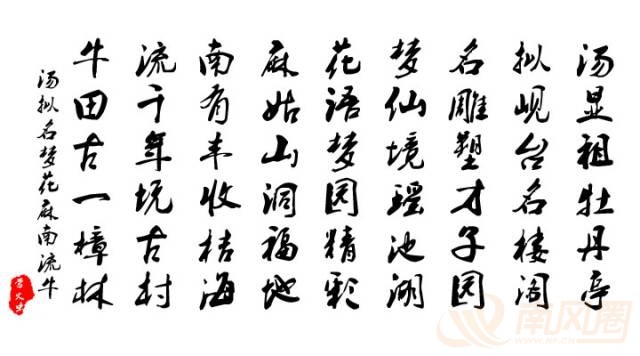 汤显祖牡丹亭
拟岘台名楼阁
名雕塑才子园
梦仙境瑶池湖
花语梦园精彩
麻姑山洞福地
南有丰收桔海
流千年坑古村
牛田古一樟林
汤拟名梦花麻南流牛
南风圈